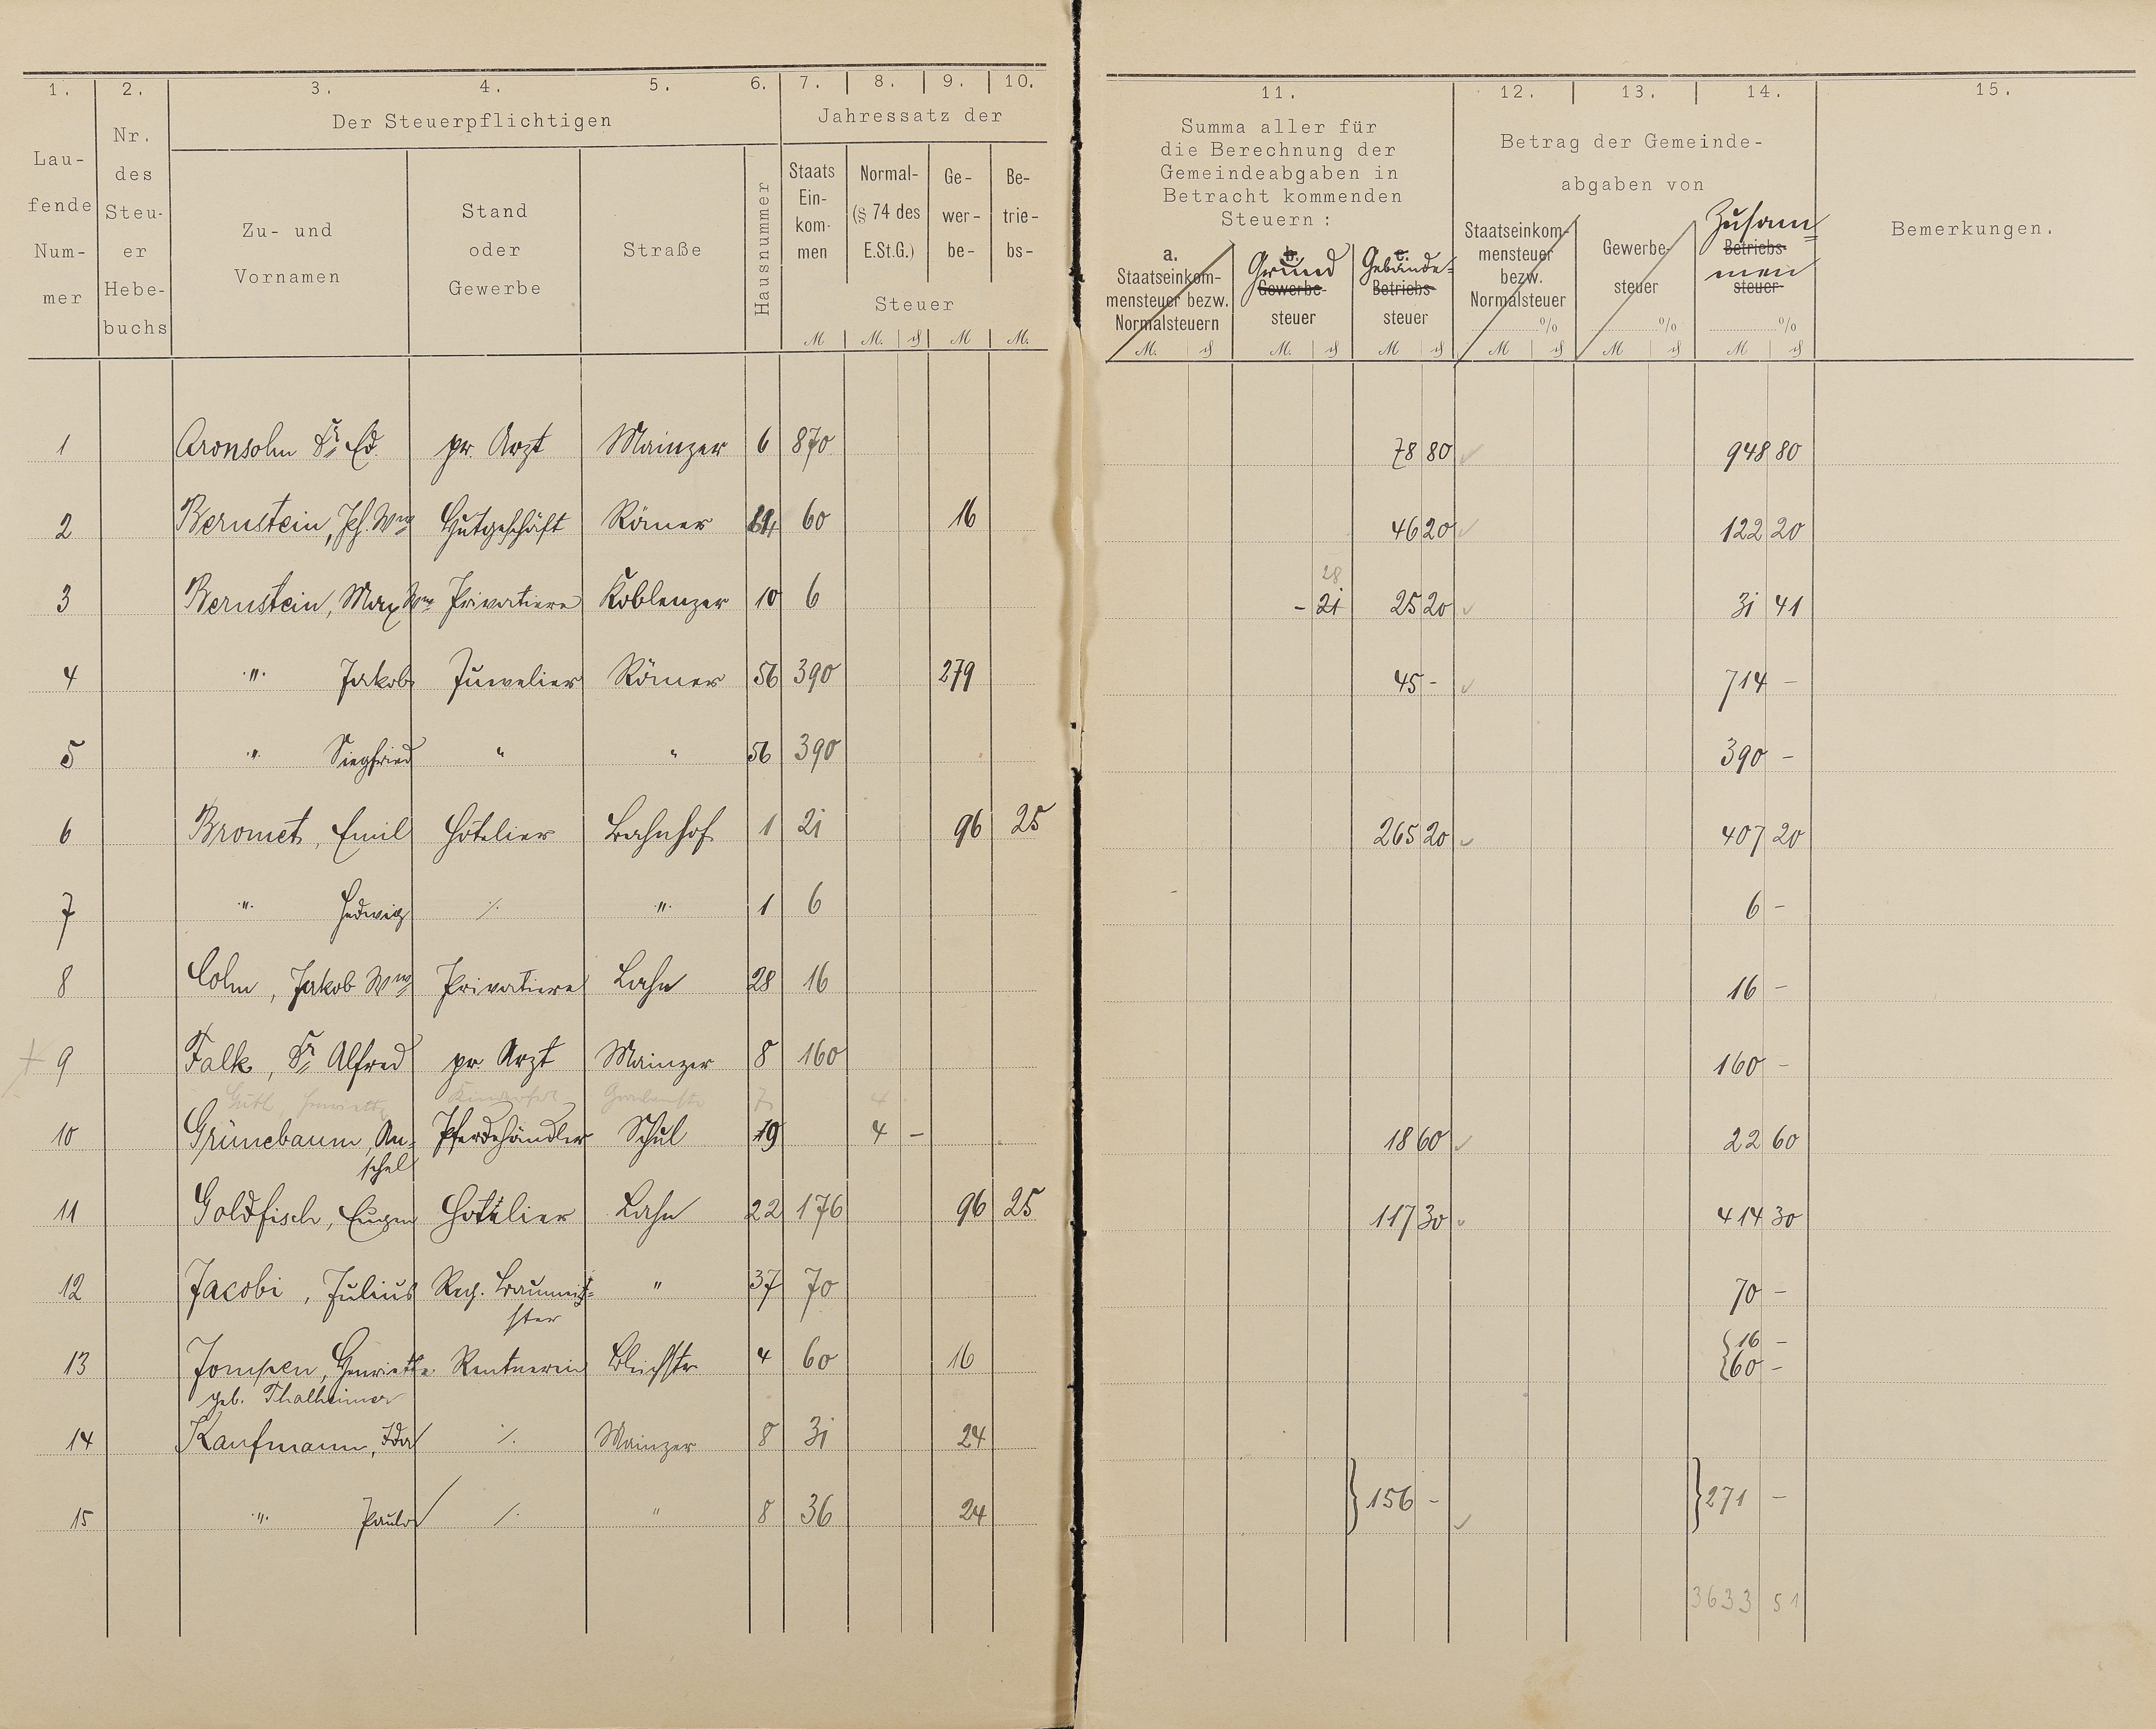 1. 2. 3. 4. 5. 6. 7. 8. 9. 10. 11. 12. 13. 14. 15.
Der Steuerpflichtigen
Jahressatz der
Lau-
fende
Num-
mer
Nr.
des
Steu-
er
Hebe-
buchs
Zu- und
Vornamen
Stand
oder
Gewerbe
Straße
Hausnummer
Staats
Ein-
kom-
men
Normal-
(§ 74 des
E.St.G.)
Ge-
wer-
be-
Be-
trie-
bs-
Steuer
M M. ₰ M M.
Summa aller für
die Berechnung der
Gemeindeabgaben in
Betracht kommenden
Steuern :
a.
Staatseinkom-
mensteuer bezw.
Normalsteuern
b.
Grund
Gewerbe-
steuer
c.
Gebäude-
Betriebs-
steuer
Betrag der Gemeinde-
abgaben von
Staatseinkom-
mensteuer
bezw.
Normalsteuer
%
Gewerbe-
steuer
%
Zusam
Betriebs-
men
steuer
%
Bemerkungen.
M. ₰ M. ₰ M ₰ M ₰ M ₰ M ₰
1 Aronsohn Dr. Ed. pr. Arzt Mainzer 6 870 78 80 948 80
2 Bernstein, Jos. Wwe Hutgeschäft Römer 60 16 46 20 122 20
28
3 Bernstein, Max Wwe Privatiere Koblenzer 10 6 - 21 25 20 31 41
4 " Jakob Juwelier Römer 56 390 279 45 - 714 -
5 " Siegfried " " 56 390 390 -
6 Bromet, Emil Hôtelier Bahnhof 1 21 96 25 265 20 407 20
7 " Hedwig ⁒ " 1 6 6 -
8 Cohn, Jakob Wwe Privatiere Bahn 28 16 16 -
9 Falk, Dr. Alfred pr. Arzt Mainzer 8 160 160 -
Henriette 7 4
10 Grünebaum, An- Pferdehändler Schul 19 4 - 18 60 22 60
schel
11 Goldfisch, Eugen Hotelier Bahn 22 176 96 25 117 30 414 30
12 Jacobi, Julius Reg. Baumei- " 37 70 70 -
ster
13 Jompen, Henriette Rentnerin Bleichstr 4 60 16 16 -
60 -
geb. Thalheimer
14 Kaufmann, Ida ⁒ Mainzer 8 31 24
156 - 271 -
15 " Paula ⁒ " 8 36 24
3633 51